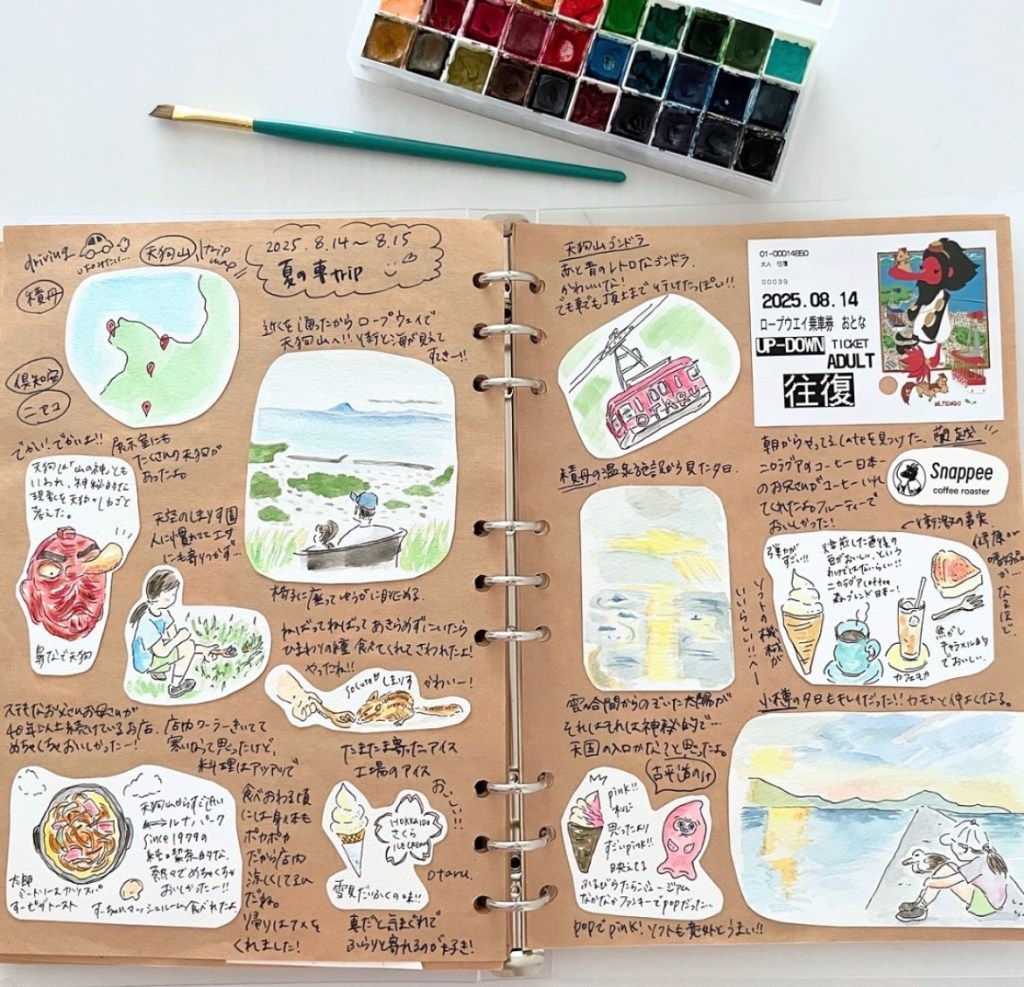 driving
天狗山
trip map
2025. 8.14〜8.15
夏の車trip
積丹
倶知安
ニセコ
近くを通ったからロープウェイで
天狗山へ!! 街と海が見えて
すてきー!!
でかい!でかいよ!! 展示室にも
たくさんの天狗が
あったよ
天狗は「山の神」とも
いわれ、神秘的な
現象を天狗のしわざと
考えた。
鼻なで天狗
天空のしまりす園
人に慣れててエサ
にも寄りつかず…
椅子に座ってゆうがに眺める。
ねばってねばってあきらめずにいたら
ひまわりの種 食べてくれてさわれたよ!
やったね!!
so cute しまりす
かわいー!
ステキなお父さんお母さんが
40年以上続けているお店。
めちゃくちゃおいしかったー!
店内クーラーきいてて
寒いなって思ったけど、
料理はアツアツで
食べおわる頃
には身も
ポカポカ
だから店内
涼しくしてるん
だね。
帰りはアメを
くれました!
天狗山からすぐ近い
ルナパーク
since 1979の
熱々でめちゃくちゃ
おいしかったー!!
太郎
ミートソースカツスパ
チーズトースト
マッシュルーム食べれたよ
たまたま寄ったアイス
工場のアイス
おいしい!!
HOKKAIDO
さくら
ICE CREAM
Otaru.
雪見だいふくの味!!
車だと気まぐれで
ふらりと寄れるのが好き!
天狗山ゴンドラ
赤と青のレトロなゴンドラ。
かわいいな!
でも車でも頂上まで行けたっぽい!!
OTARU
01-00014850
大人 往復
00039
2025.08.14
ロープウエイ乗車券 おとな
UP-DOWN TICKET
ADULT
往復
積丹の温泉施設から見た夕日。
雲の合間からのぞいた太陽が
それはそれは神秘的で…
天国の入口かな?と思ったよ
朝からやってるcafeを見つけた、蘭越
ニカラグアのコーヒー日本一
のお兄さんがコーヒーいれ
てくれたよ フルーティーで
おいしかった!
Snappee
coffee roaster
衝撃の事実
弾力が
すごい!!
焙煎した直後の
豆がおいしい、という
わけではないらしい!!
ニカラグアcoffee
ブレンド日本一!
カフェモカ
焦がし
キャラメル的
でおいしい。
なるほど。
ソフトの機械が
いいらしい!!へー
小樽の夕日もキレイだった!! カモメと仲よくなる。
古平道の駅
pink!!
思ったより
すごいpink!!
映えてる
ふるびらたらこミュージアム
なかなかファンキーでpopだった…
popでpink! ソフトも意外とうまい!!